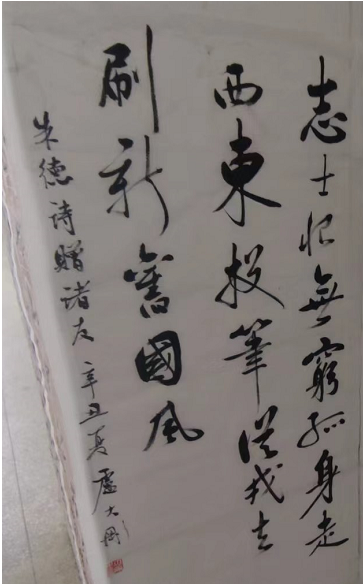 志士恨無窮孤身走
西東投筆從戎去
刷新舊國風
朱德诗赠诸友 辛丑夏 盧大